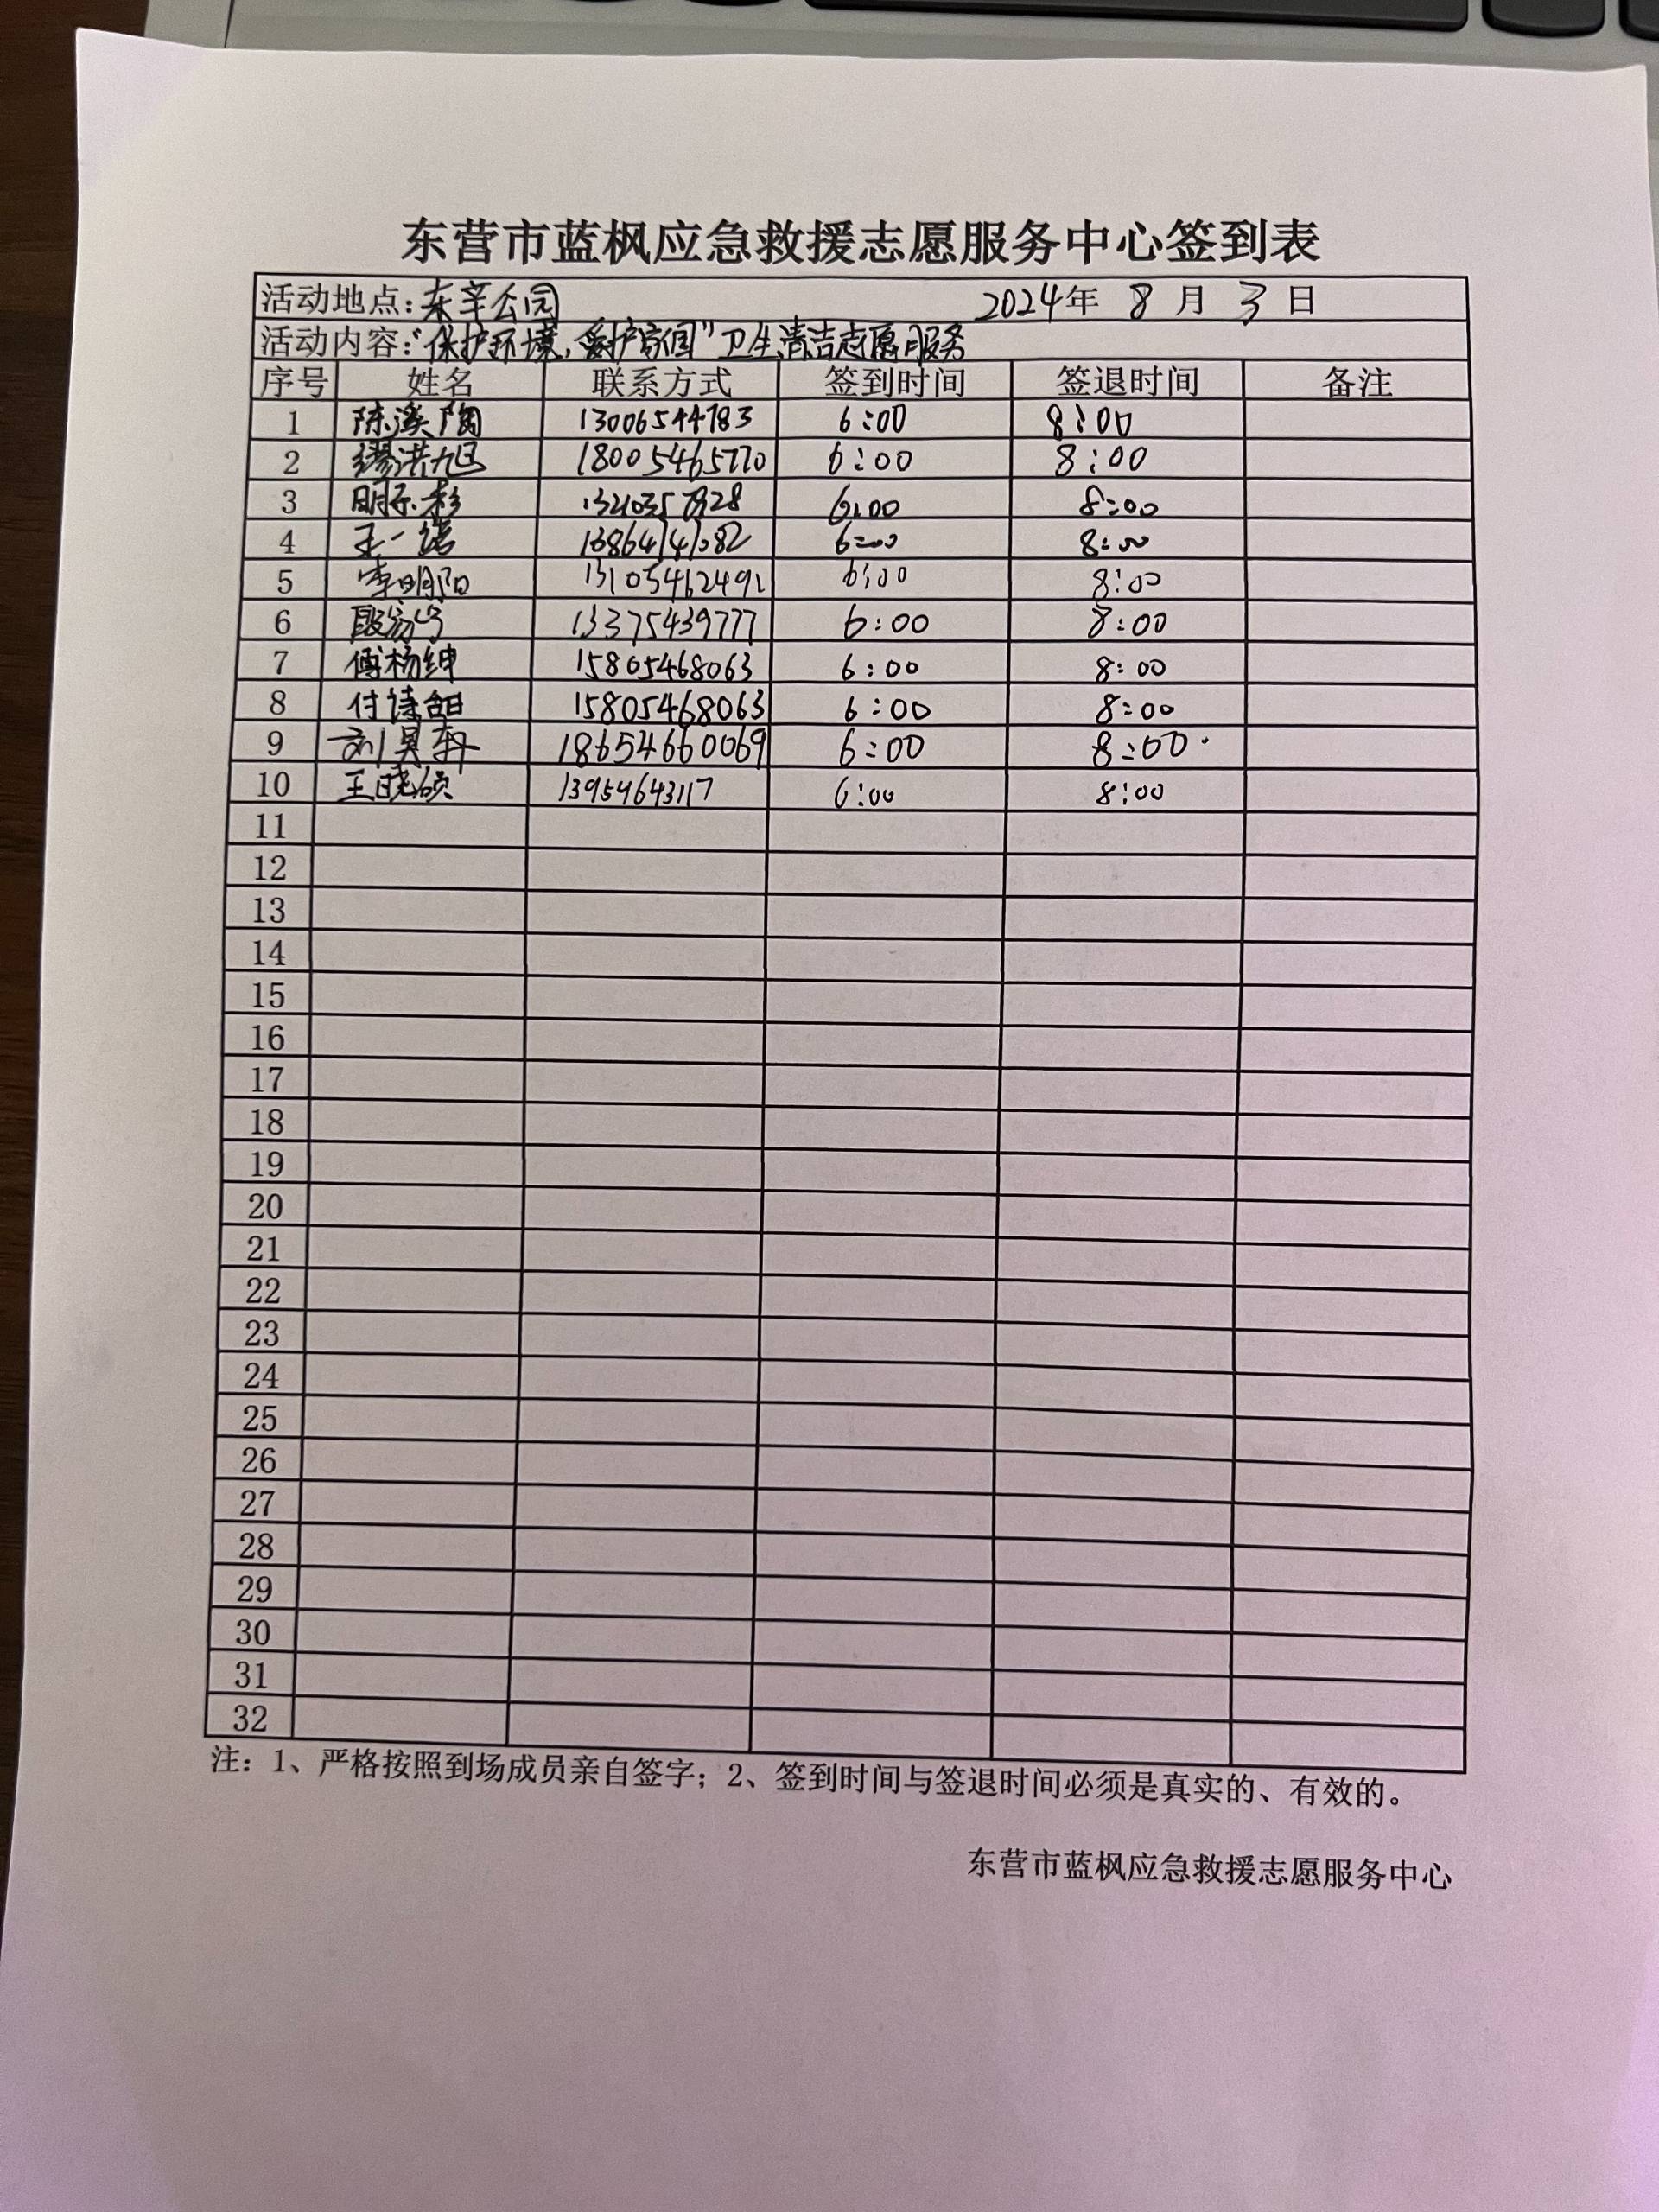 东营市蓝枫应急救援志愿服务中心签到表
活动地点：东辛公园 2024年 8 月 3 日
活动内容：“保护环境，爱护家园”卫生清洁志愿服务
序号 姓名 联系方式 签到时间 签退时间 备注
1 陈溪陶 13006544783 6:00 8:00
2 缪洪旭 18005465770 6:00 8:00
3 6:00 8:00
4 王一诺 6:00 8:00
5 李明阳 13105462491 6:00 8:00
6 13375439777 6:00 8:00
7 傅杨绅 15805468063 6:00 8:00
8 付诗甜 15805468063 6:00 8:00
9 刘昊轩 18654660069 6:00 8:00
10 王晓硕 13954643117 6:00 8:00
11
12
13
14
15
16
17
18
19
20
21
22
23
24
25
26
27
28
29
30
31
32
注：1、严格按照到场成员亲自签字；2、签到时间与签退时间必须是真实的、有效的。
东营市蓝枫应急救援志愿服务中心